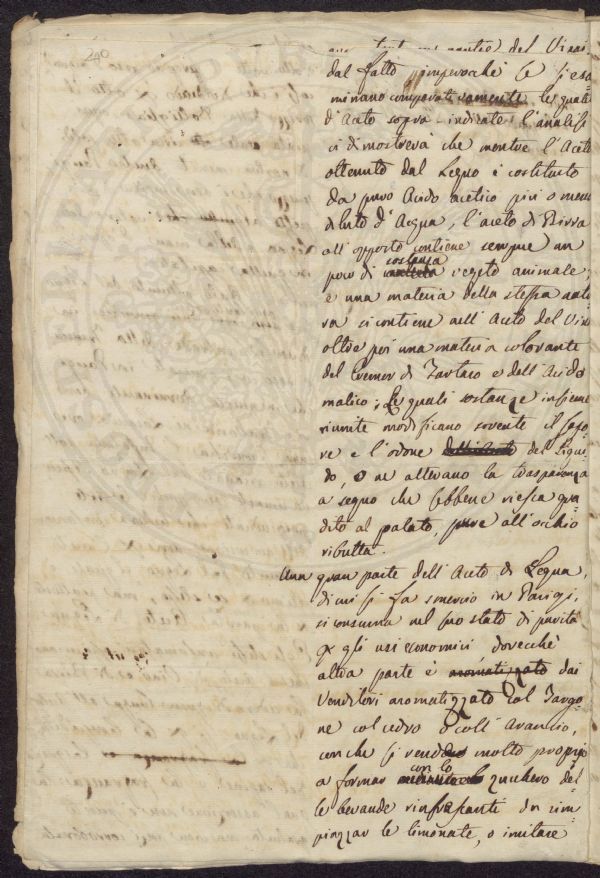 240
del Vino
dal fatto imperocchè se si esa-
minano comparativamente le quali
d'Aceto sopra indicate l'analisi
ci dimostrerà che mentre l'Aceto
ottenuto dal Legno è costituito
da puro Acido acetico più o meno
diluto d'Acqua, l'aceto di Birra
all'opposto contiene sempre un
poco di sostanza vegeto animale;
e una materia della stessa natu-
ra si contiene nell'Aceto del Vino
oltre poi una materia colorante
del Cremor di Tartaro e dell'Acido
malico; Le quali sostanze insieme
riunite modificano sovente il sapo-
re e l'odore del Liqui-
do, o ne alterano la trasparenza
a segno che sebbene riesca gra-
dito al palato, pure all'occhio
ributta.
Una gran parte dell'Aceto di Legna,
di cui si fa smercio in Parigi,
si consuma nel suo stato di purità
gli usi economici dovecchè
altra parte è aromatizzato dai
Venditori aromatizzato col Targo-
ne col cedro o coll'Arancio,
con che si rende molto proprio
a formar con lo zucchero del-
le bevande rinfrescanti da rim-
piazzar le limonate, o imitare